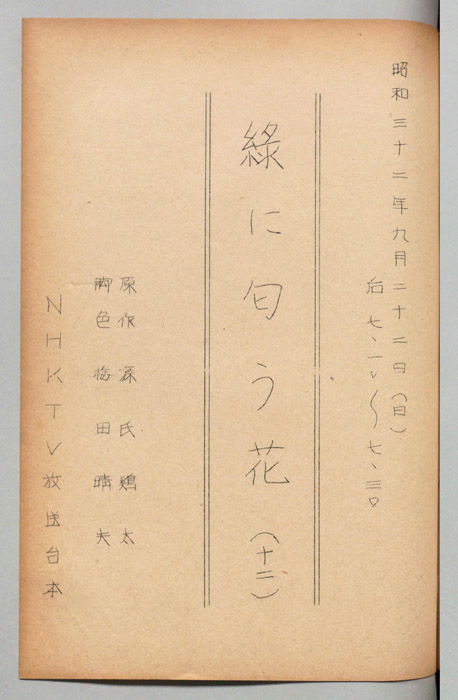 昭和三十二年九月二十二日（日）
后七、一〇〜七、三〇
綠に匂う花（十二）
原作 源氏鶏太
脚色 梅田晴夫
NHKTV放送台本